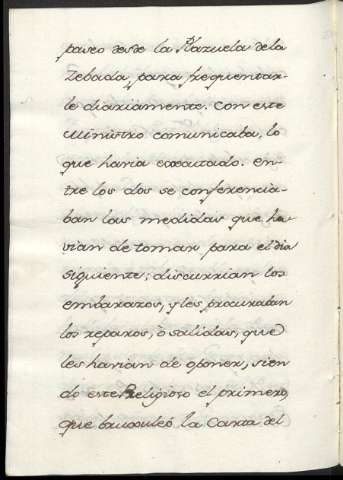 paseo desde la Plazuela dela
Zebada, para frequentar-
le diariamente. Con este
Ministro comunicaba, lo
que havia executado. En-
tre los dos se conferencia-
ban las medidas que ha-
vian de tomar para el dia
siguiente; discurrian los
embarazos, y les procuraban
los reparos, ò salidas, que
les havian de oponer, sien
do este Religioso el primero,
que la Carta del